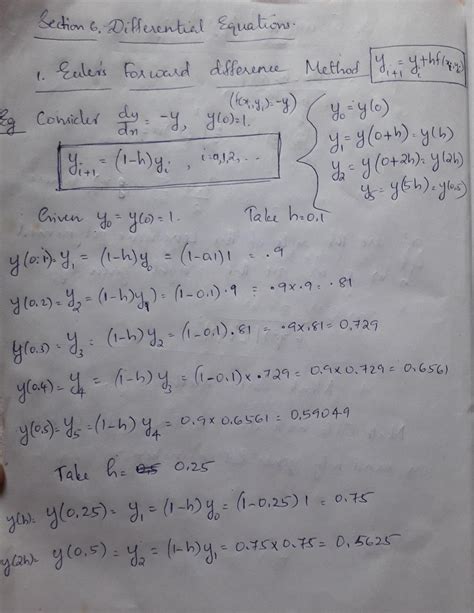 Section 6. Differential Equations.
1. Euler's Forward difference Method y_{i+1} = y_i + hf(x_i, y_i)
Eg Consider dy/dx = -y, y(0)=1. (f(x_i, y_i) = -y)
y_{i+1} = (1-h)y_i, i=0,1,2,...
y_0 = y(0)
y_1 = y(0+h) = y(h)
y_2 = y(0+2h) = y(2h)
y_5 = y(5h) = y(0.5)
Given y_0 = y(0) = 1. Take h=0.1
y(0.1) = y_1 = (1-h)y_0 = (1-0.1)1 = .9
y(0.2) = y_2 = (1-h)y_1 = (1-0.1).9 = .9x.9 = .81
y(0.3) = y_3 = (1-h)y_2 = (1-0.1).81 = .9x.81 = 0.729
y(0.4) = y_4 = (1-h)y_3 = (1-0.1)x.729 = 0.9x0.729 = 0.6561
y(0.5) = y_5 = (1-h)y_4 = 0.9x0.6561 = 0.59049
Take h = 0.25
y(h) = y(0.25) = y_1 = (1-h)y_0 = (1-0.25)1 = 0.75
y(2h) = y(0.5) = y_2 = (1-h)y_1 = 0.75x0.75 = 0.5625